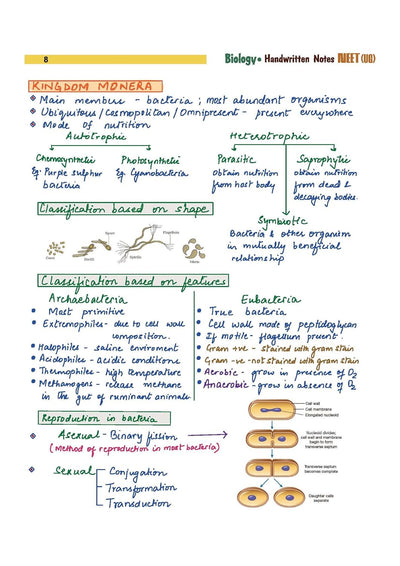 8
Biology • Handwritten Notes NEET (UG)
KINGDOM MONERA
Main members - bacteria ; most abundant organisms
Ubiquitous / Cosmopolitan / Omnipresent - present everywhere
Mode of nutrition
Autotrophic
Heterotrophic
Chemosynthetic
Photosynthetic
Eg: Purple sulphur bacteria
Eg: Cyanobacteria
Parasitic
Saprophytic
obtain nutrition
from host body
obtain nutrition
from dead &
decaying bodies
Symbiotic
Bacteria & other organism
in mutually beneficial
relationship
Classification based on shape
Cocci
Bacilli
Spore
Spirilla
Flagellum
Vibrio
Classification based on features
Archaebacteria
Most primitive
Extremophiles - due to cell wall
composition.
Halophiles - saline enviroment
Acidophiles - acidic conditions
Thermophiles - high temperature
Methanogens - release methane
in the gut of ruminant animals
Eubacteria
True bacteria
Cell wall made of peptidoglycan
If motile - flagellum present.
Gram +ve - stained with gram stain
Gram -ve - not stained with gram stain
Aerobic - grow in presence of O2
Anaerobic - grow in absence of O2
Reproduction in bacteria
Asexual - Binary fission
(Method of reproduction in most bacteria)
Sexual
Conjugation
Transformation
Transduction
Cell wall
Cell membrane
Elongated nucleoid
Nucleoid divides,
cell wall and membrane
begin to form
transverse septum
Transverse septum
becomes complete
Daughter cells
separate